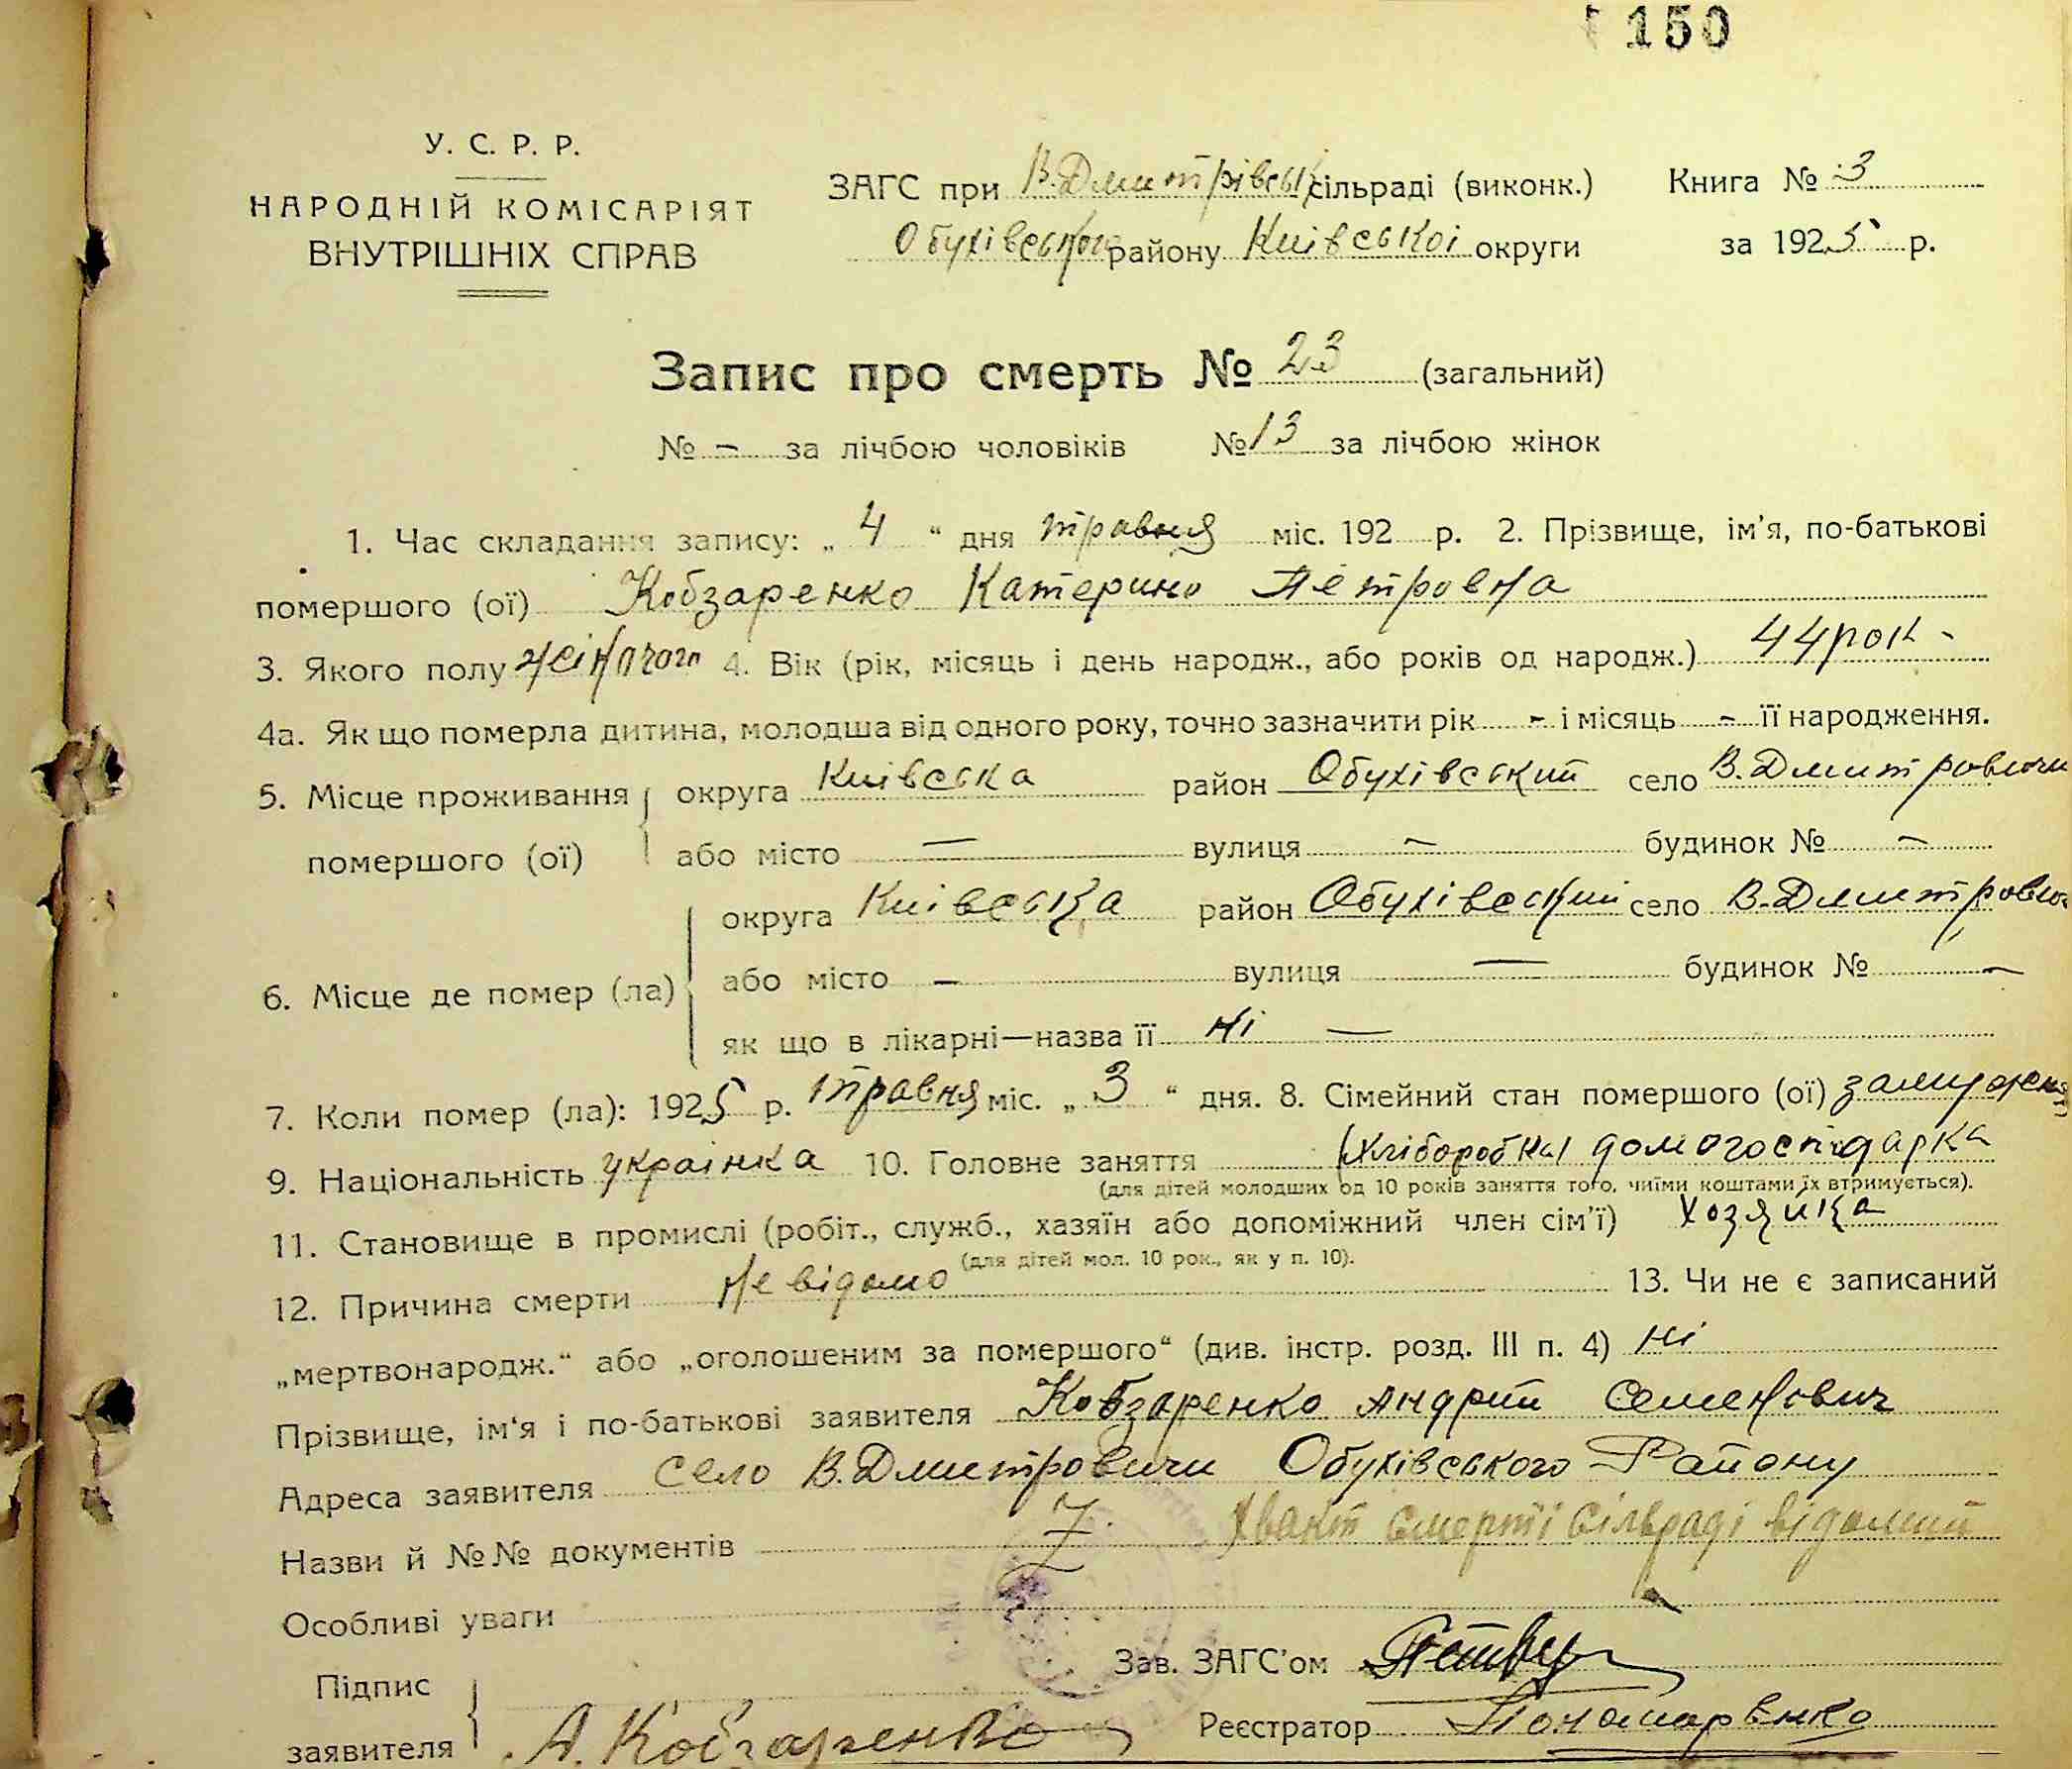 150
У. С. Р. Р.
НАРОДНІЙ КОМІСАРІЯТ
ВНУТРІШНІХ СПРАВ
ЗАГС при В.Дмитрівськ сільраді (виконк.) Книга № 3
Обухівського району Київської округи за 1925 р.
Запис про смерть № 23 (загальний)
№ – за лічбою чоловіків № 13 за лічбою жінок
1. Час складання запису: „ 4 “ дня травня міс. 192 р. 2. Прізвище, ім’я, по-батькові
помершого (ої) Кобзаренко Катерина Петровна
3. Якого полу жіночого 4. Вік (рік, місяць і день народж., або років од народж.) 44 рок -
4а. Як що померла дитина, молодша від одного року, точно зазначити рік - і місяць - її народження.
5. Місце проживання округа Київська район Обухівський село В.Дмитровичи
помершого (ої) або місто — вулиця — будинок № —
округа Київська район Обухівський село В.Дмитрович
6. Місце де помер (ла) або місто — вулиця — будинок № —
як що в лікарні—назва її ні —
7. Коли помер (ла): 1925 р. травня міс. „ 3 “ дня. 8. Сімейний стан помершого (ої) замужня
9. Національність українка 10. Головне заняття (хліборобка) домогосподарка
(для дітей молодших од 10 років заняття того, чиїми коштами їх втримується).
11. Становище в промислі (робіт., служб., хазяїн або допоміжний член сім’ї) хозяйка
(для дітей мол. 10 рок., як у п. 10).
12. Причина смерти Не відомо 13. Чи не є записаний
„мертвонародж.“ або „оголошеним за помершого“ (див. інстр. розд. III п. 4) ні
Прізвище, ім‘я і по-батькові заявителя Кобзаренко Андрій Семенович
Адреса заявителя село В.Дмитровичи Обухівського Району
Назви й №№ документів Хвакт смерті сільраді відомий
Особливі уваги
Зав. ЗАГС’ом
Підпис
заявителя А. Кобзаренко Реєстратор Пономаренко